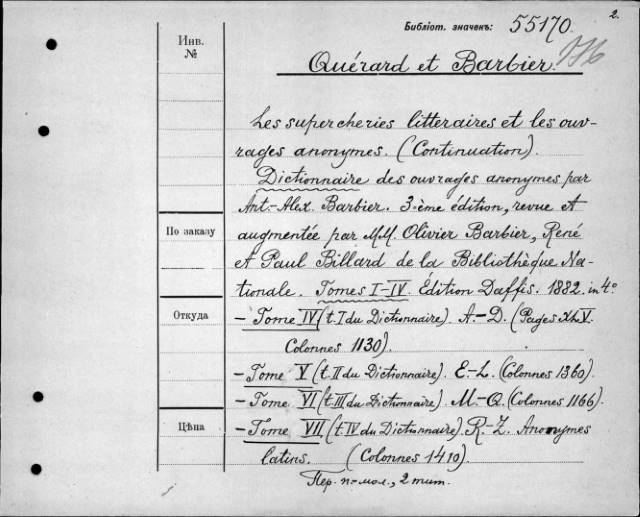 2.
Библіот. значекъ: 55170.
Инв.
№
Quérard et Barbier.
Les supercheries litteraires et les ouv-
rages anonymes. (Continuation).
Dictionnaire des ouvrages anonymes par
Ant.-Alex. Barbier. 3-ème édition, revue et
По заказу
augmentée par M.M. Olivier Barbier, René
et Paul Billard de la Bibliothèque Na-
tionale. Tomes I-IV. Édition Daffis. 1882. in 4º
Откуда
- Tome IV (t. I du Dictionnaire). A-D. (Pages XLV.
Colonnes 1130).
- Tome V (t. II du Dictionnaire). E-L. (Colonnes 1360).
- Tome VI (t. III du Dictionnaire). M-Q. (Colonnes 1166).
Цѣна
- Tome VII (t. IV du Dictionnaire). R-Z. Anonymes
latins. (Colonnes 1410).
Пер. п-мол., 2 тит.